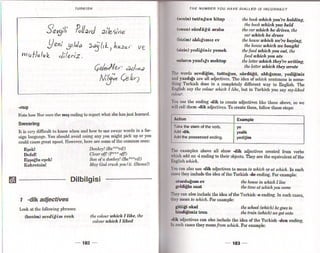 TURKISH
Sevgili Pollard ailesine
Yeni yılda sağlık, huzur ve
mutluluk dileriz.
Çebi
-mış
Kate has Nur uses the mış ending to report what she has just learned.
Swearing
It is very difficult to know when and how to use swear words in a foreign language. You should avoid using any you might pick up or you could cause great upset. However, here are some of the common ones:
Eşek!
Defol!
Eşşoğlu eşek!
Kahretsin!
Donkey! (Ba***rd!)
Clear off! (F*** off!)
Son of a donkey! (Ba***rd!)
May God crush you/it. (Damn!)
Dilbilgisi
1 -dik adjectives
Look at the following phrases:
(benim) sevdiğim renk
the colour which I like, the
colour which I liked
— 182 —
THE NUMBER YOU HAVE DIALLED IS INCORRECT
(senin) tuttuğun kitap
the book which you're holding,
the book which you held
(onun) sürdüğü araba
the car which he drives, the
car which he drove
(bizim) aldığımız ev
the house which we're buying,
the house which we bought
(sizin) yediğiniz yemek
the food which you eat, the
food which you ate
onların yazdığı mektup
the letter which they're writing,
the letter which they wrote
The words sevdiğim, tuttuğun, sürdüğü, aldığımız, yediğiniz
and yazdığı are all adjectives. The idea of which sentences is something Turkish does in a completely different way to English. The English say the colour which I like, but in Turkish you say my-liked colour.
You use the ending -dik to create adjectives like those above, so we will call them -dik adjectives. To create them, follow these steps:
Action
Example
Take the stem of the verb.
ye
Add -dik.
yedik
Add the possessed ending.
yediğim
The examples above all show -dik adjectives created from verbs which add no -i ending to their objects. They are the equivalent of the English which.
You can also use -dik adjectives to mean in which or at which. In such cases they include the idea of the Turkish -de ending. For example:
oturduğum ev
the house in which I live
geldiğin saat
the time at which you came
They can also include the idea of the Turkish -e ending. In such cases, they mean to which. For example:
gittiği okul
the school (which) he goes to
bindiğimiz tren
the train (which) we got onto
-dik adjectives can also include the idea of the Turkish -den ending. In such cases they mean from which. For example:
— 183 —